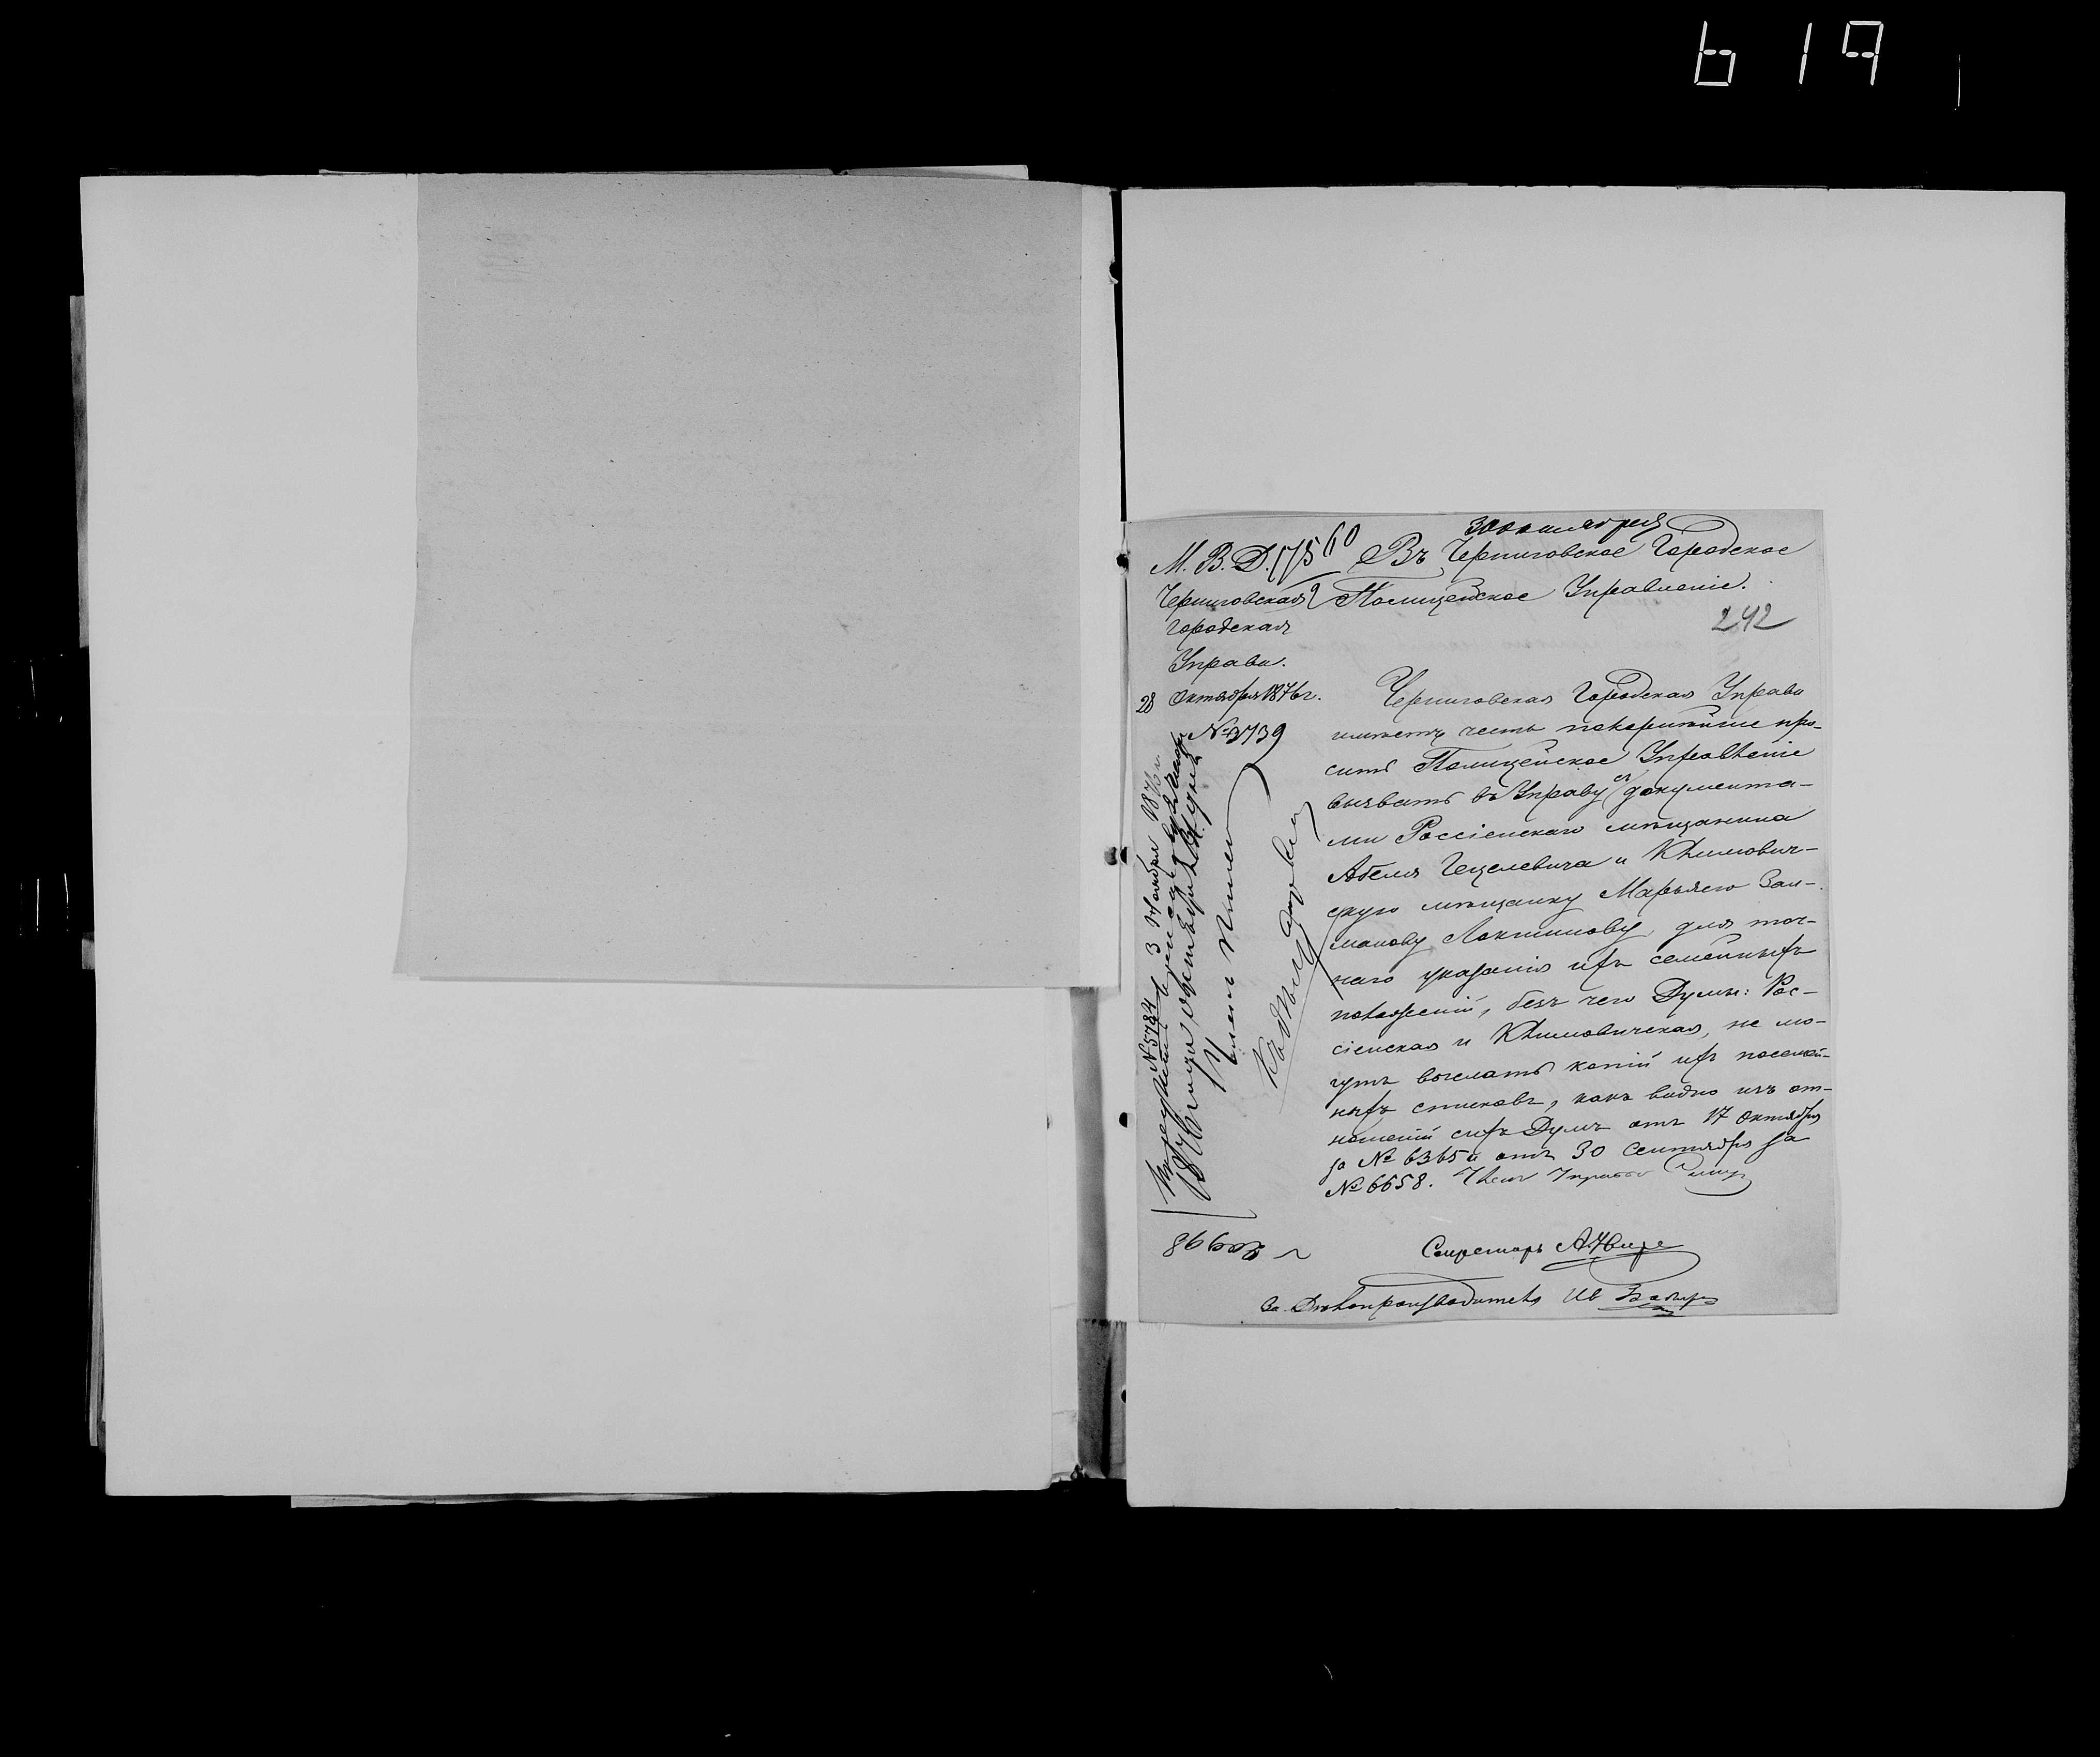 619
30 октября
М. В. Д. 17560
Черниговская
Городская
Управа.
28 Октября 1876 г.
№ 3739
Въ Черниговское Городское
Полицейское Управленіе.
242
Черниговская Городская Управа
имѣетъ честь покорнѣйше про-
сить Полицейское Управленіе
вызвать въ Управу съ документа-
ми Россіенскаго мѣщанина
Абеля Гецелевича и Климович-
скую мѣщанку Марьясю Зал-
манову Локшинову, для точ-
наго указанія ихъ семейныхъ
положеній, безъ чего Думы: Рос-
сіенская и Климовичская, не мо-
гутъ выслать копій ихъ посемей-
ныхъ списковъ, какъ видно изъ от-
ношеній сихъ Думъ отъ 17 Октября
за № 6365 и отъ 30 Сентября за
№ 6658. Членъ Управы
Секретарь
За Дѣлопроизводителя Ив
№ 5784 3 Ноября 1876 г.